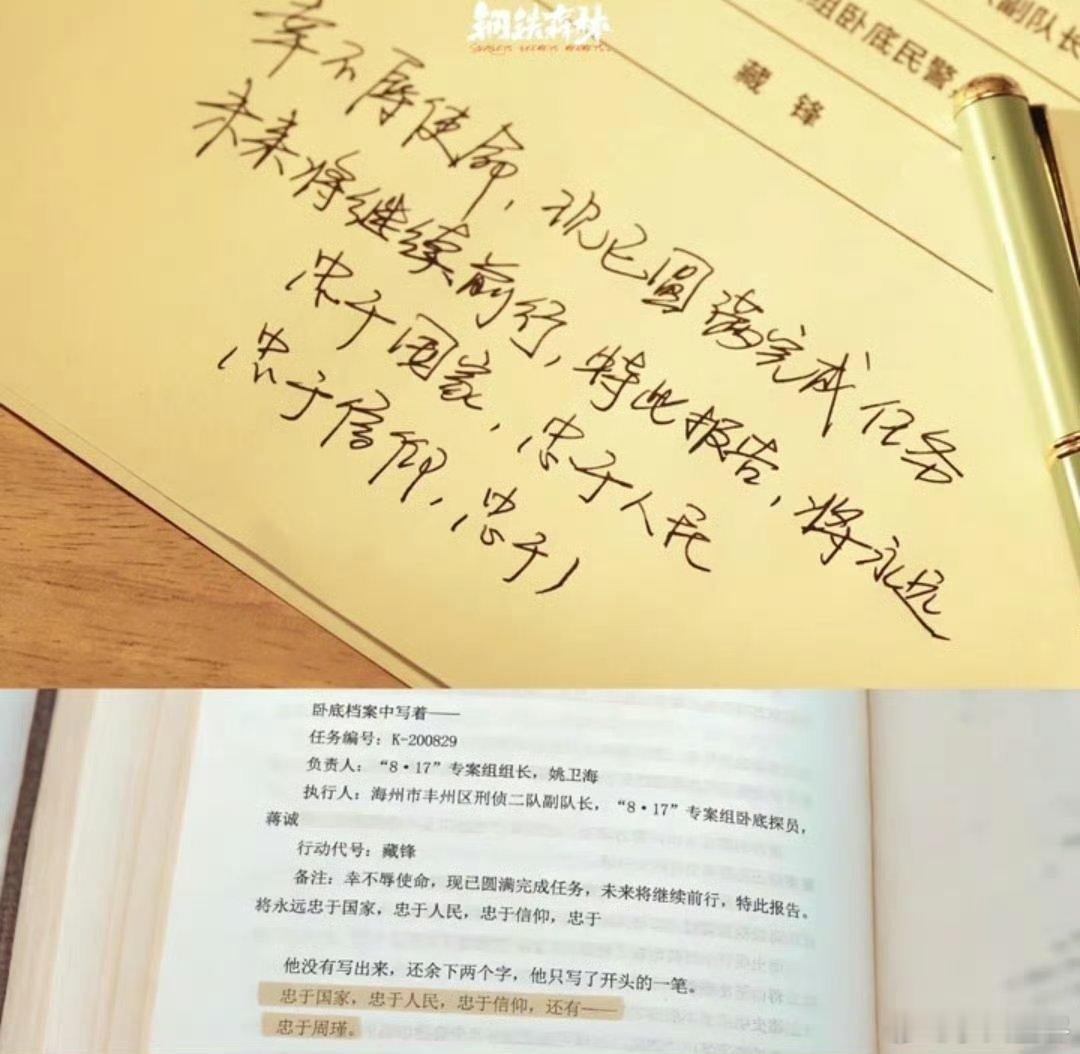 钢铁森林
副队长
组卧底民警
藏锋
幸不辱使命，现已圆满完成任务
未来将继续前行，特此报告，将永远
忠于国家，忠于人民
忠于信仰，忠于丿
卧底档案中写着——
任务编号：K-200829
负责人：“8·17”专案组组长，姚卫海
执行人：海州市丰州区刑侦二队副队长，“8·17”专案组卧底探员，
蒋诚
行动代号：藏锋
备注：幸不辱使命，现已圆满完成任务，未来将继续前行，特此报告。
将永远忠于国家，忠于人民，忠于信仰，忠于
他没有写出来，还余下两个字，他只写了开头的一笔。
忠于国家，忠于人民，忠于信仰，还有——
忠于周瑾。